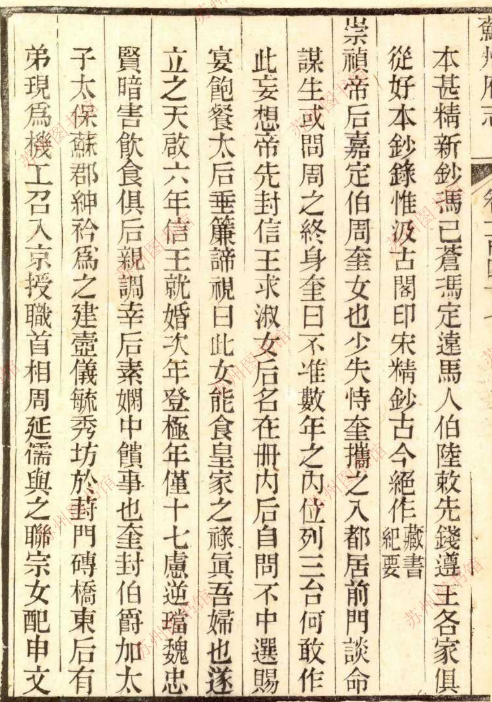 蘇州府志
本甚精新鈔馮已蒼馮定遠馬人伯陸敕先錢遵王各家俱
從好本鈔錄惟汲古閣印宋精鈔古今絕作藏書紀要
崇禎帝后嘉定伯周奎女也少失恃奎攜之入都居前門談命
謀生或問周之終身奎曰不准數年之內位列三台何敢作
此妄想帝先封信王求淑女后名在冊內后自問不中選賜
宴飽餐太后垂簾諦視曰此女能食皇家之祿眞吾婦也遂
立之天啟六年信王就婚次年登極年僅十七慮逆璫魏忠
賢暗害飲食俱后親調幸后素嫻中饋事也奎封伯爵加太
子太保蘇郡紳衿爲之建壼儀毓秀坊於葑門磚橋東后有
弟現爲機工召入京授職首相周延儒與之聯宗女配申文